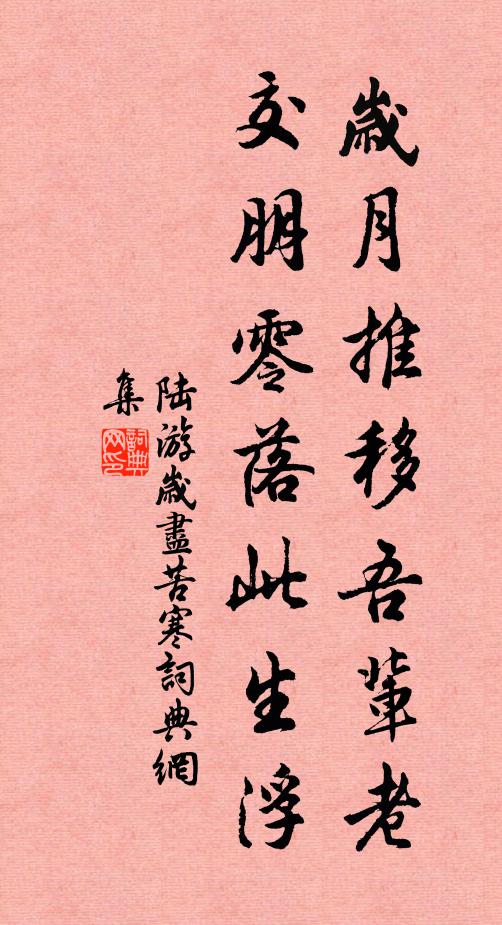 歲月推移吾輩老
交朋零落此生浮
陆游歲盡苦寒詞典網
集
詞典
网印